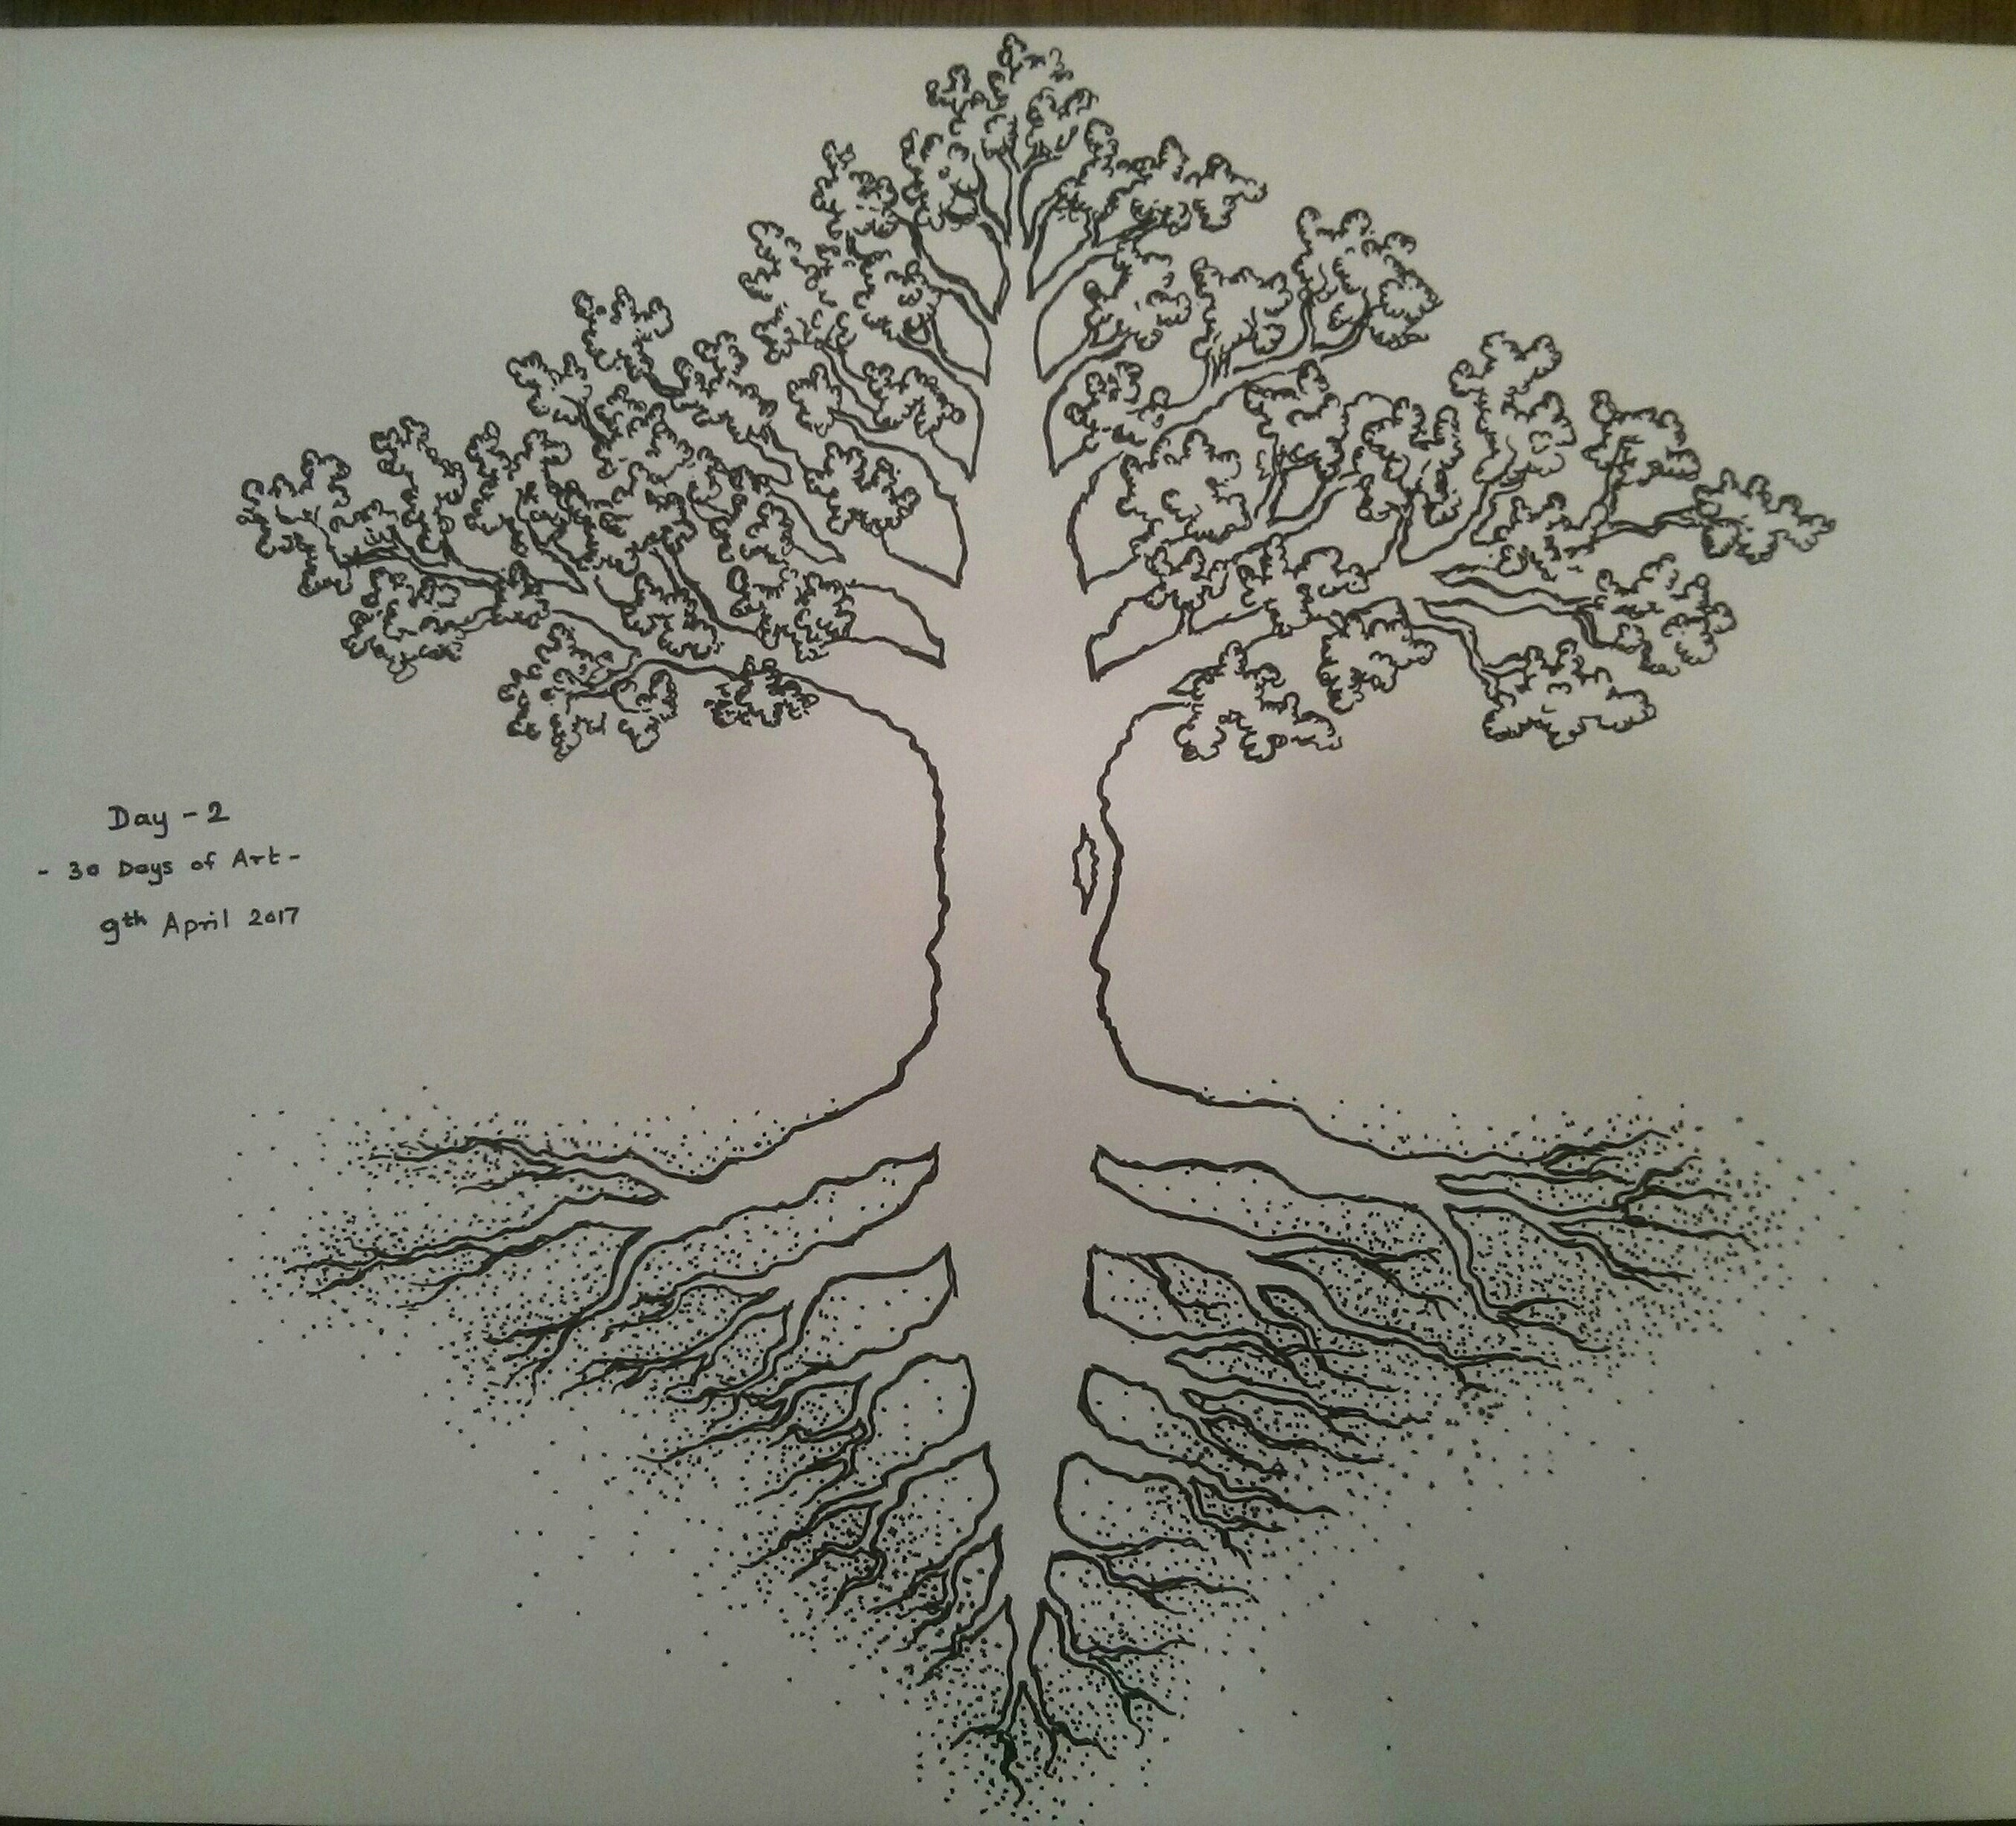 Day - 2
- 30 Days of Art -
9th April 2017